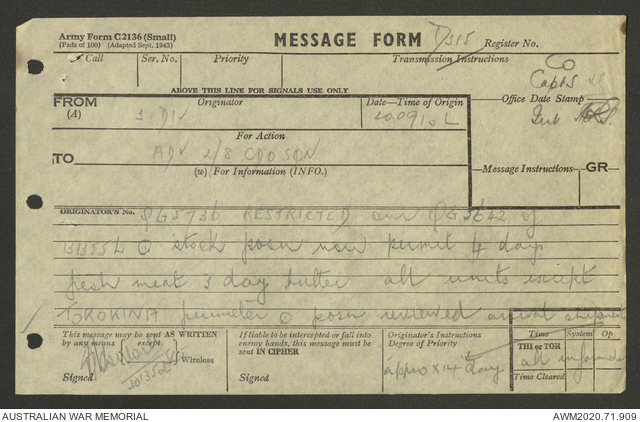 Army Form C2136 (Small)
(Pads of 100) (Adapted Sept. 1943)
MESSAGE FORM
Register No.
Call Ser. No. Priority Transmission Instructions
CO
ABOVE THIS LINE FOR SIGNALS USE ONLY
Capts
FROM Originator Date—Time of Origin Office Date Stamp
(A) 3 DIV 200910L
For Action
TO ADV 2/8 CDO SQN
(w) For Information (INFO.)
Message Instructions GR
ORIGINATOR'S No. QG5736 RESTRICTED our QG5642 of
131355L @ stock posn now permit 4 days
fresh meat 3 day butter all units except
TOROKINA perimeter @ posn reviewed arrival shipment
This message may be sent AS WRITTEN
by any means except
Wireless
Signed
201350L
If liable to be intercepted or fall into
enemy hands, this message must be
sent IN CIPHER
Signed
Originator's Instructions
Degree of Priority
approx 14 day
Time System Op
THI or TOR
all informed
Time Cleared
AUSTRALIAN WAR MEMORIAL
AWM2020.71.909